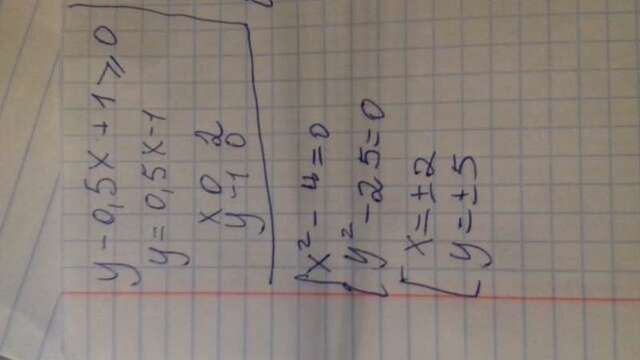 y - 0,5x + 1 ⩾ 0
y = 0,5x - 1
x 0 2
y -1 0
{ x² - 4 = 0
{ y² - 25 = 0
[ x = ±2
[ y = ±5